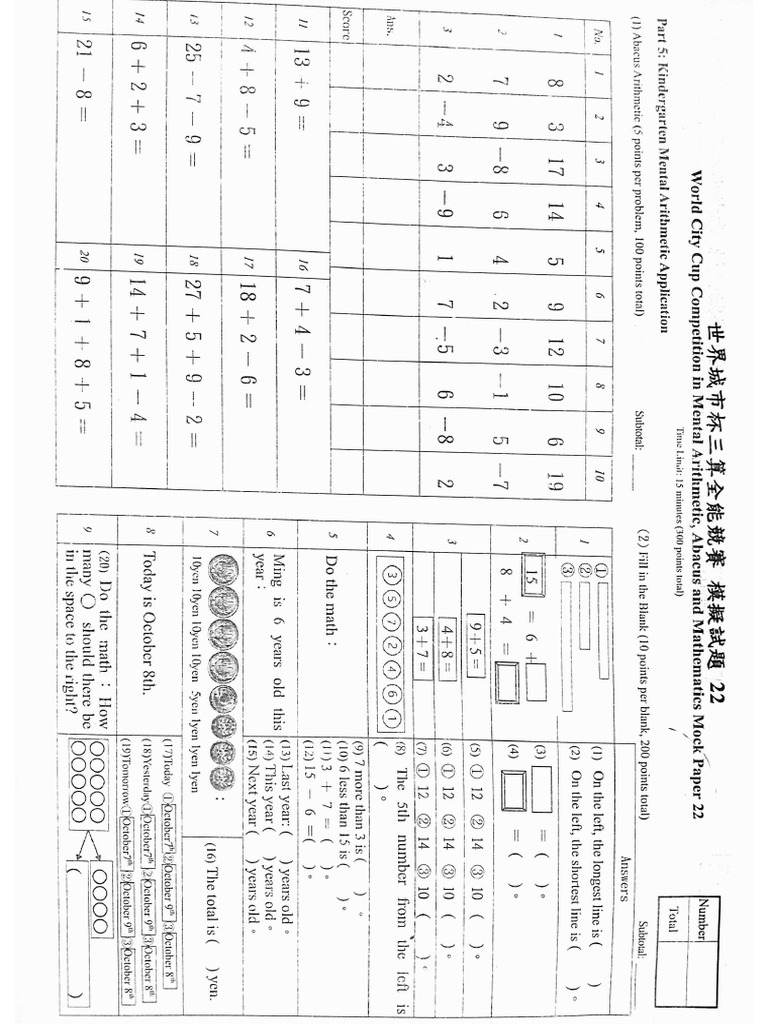 世界城市杯三算全能競賽 模擬試題 22
World City Cup Competition in Mental Arithmetic, Abacus and Mathematics Mock Paper 22
Time Limit: 15 minutes (300 points total)
Number
Total
Part 5: Kindergarten Mental Arithmetic Application
(1) Abacus Arithmetic (5 points per problem, 100 points total) Subtotal:
No. 1 2 3 4 5 6 7 8 9 10
1 8 3 17 14 5 9 12 10 6 19
2 7 9 −8 6 4 2 −3 −1 5 −7
3 2 −4 3 −9 1 7 −5 6 −8 2
Ans.
Score
11 13 + 9 = 16 7 + 4 − 3 =
12 4 + 8 − 5 = 17 18 + 2 − 6 =
13 25 − 7 − 9 = 18 27 + 5 + 9 − 2 =
14 6 + 2 + 3 = 19 14 + 7 + 1 − 4 =
15 21 − 8 = 20 9 + 1 + 8 + 5 =
(2) Fill in the Blank (10 points per blank, 200 points total) Subtotal:
Answers
1 ① ② ③
(1) On the left, the longest line is ( )
(2) On the left, the shortest line is ( )。
2 15 = 6 +
8 + 4 =
(3) = ( )。
(4) = ( )。
3 9+5= (5) ① 12 ② 14 ③ 10 ( )。
4+8= (6) ① 12 ② 14 ③ 10 ( )。
3+7= (7) ① 12 ② 14 ③ 10 ( )。
4 ③⑤⑦②④⑥①
(8) The 5th number from the left is
( )。
5 Do the math：
(9) 7 more than 3 is ( )。
(10) 6 less than 15 is ( )。
(11) 3 + 7 = ( )。
(12) 15 − 6 = ( )。
6 Ming is 6 years old this
year：
(13) Last year: ( ) years old。
(14) This year ( ) years old。
(15) Next year ( ) years old。
7 ：
10yen 10yen 10yen 10yen 5yen 1yen 1yen 1yen
(16) The total is ( ) yen.
8 Today is October 8th.
(17)Today ①October7th ②October 9th ③October 8th
(18)Yesterday①October7th ②October 9th ③October 8th
(19)Tomorrow①October7th ②October 9th ③October 8th
9 (20) Do the math：How
many ○ should there be
in the space to the right?
( )